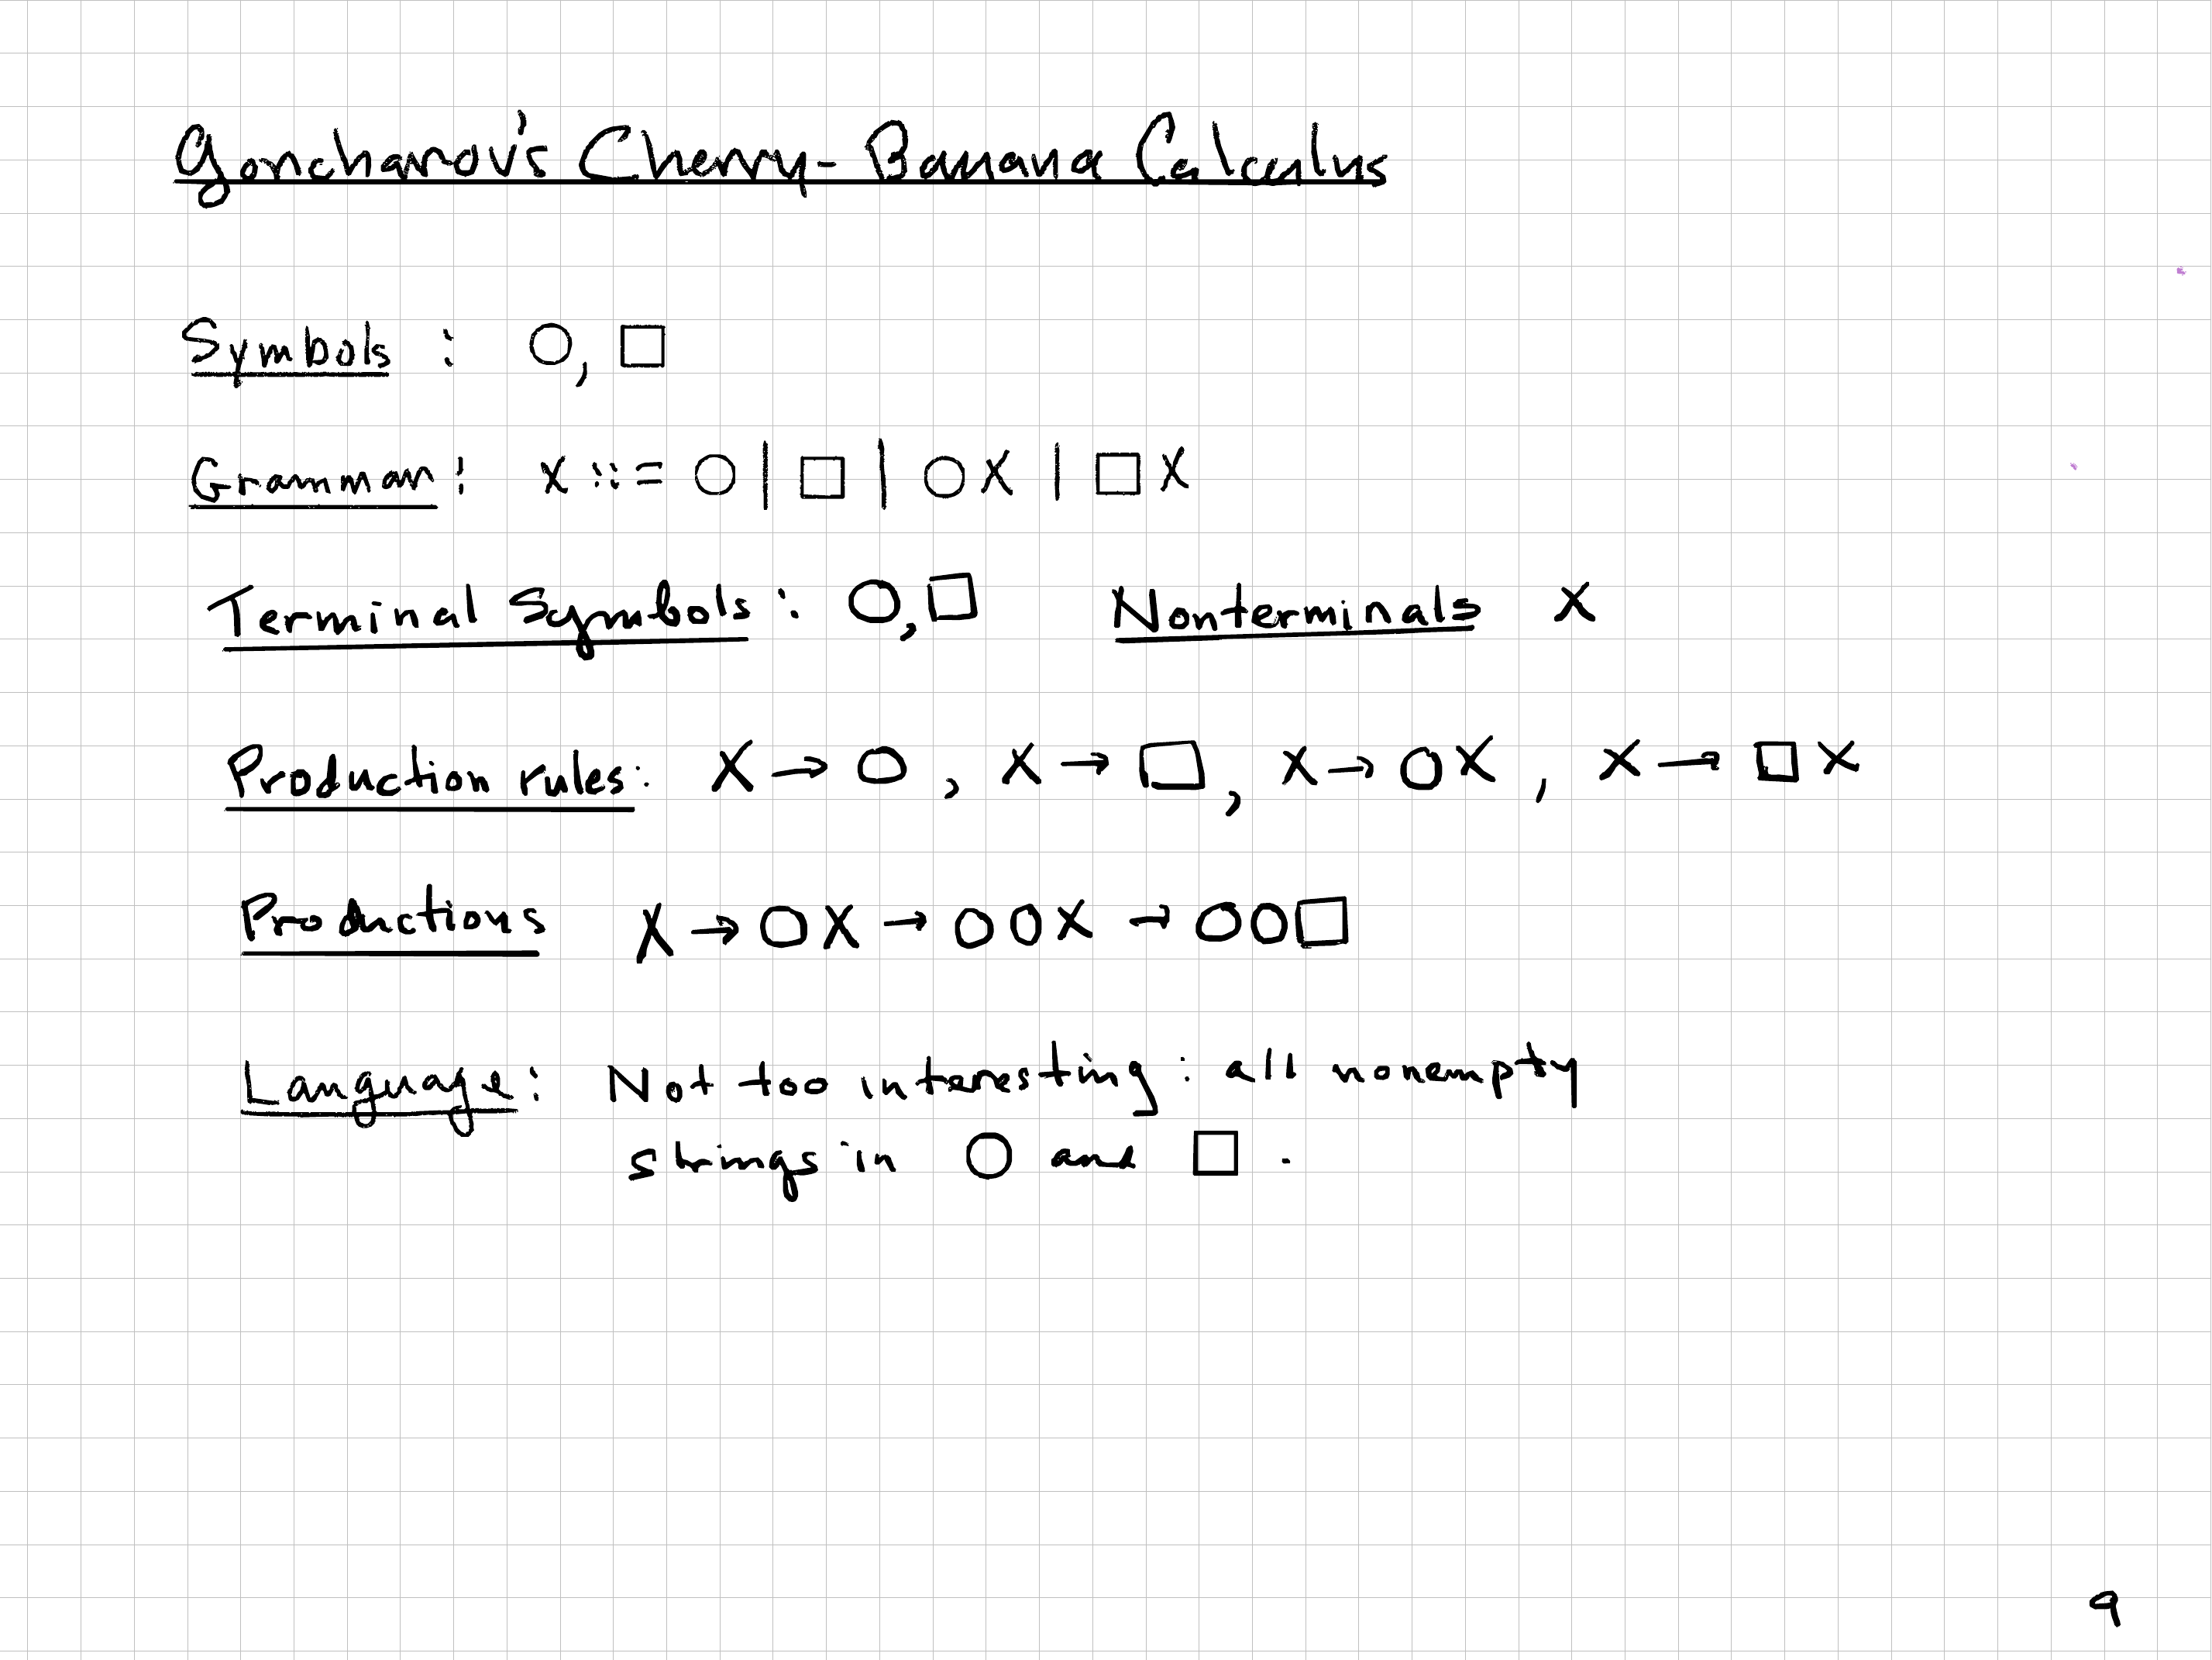 Goncharov's Cherry-Banana Calculus
Symbols : ○, □
Grammar: X ::= ○ | □ | ○X | □X
Terminal Symbols: ○,□ Nonterminals X
Production rules: X → ○, X → □, X → ○X, X → □X
Productions X → ○X → ○○X → ○○□
Language: Not too interesting: all nonempty
strings in ○ and □.
9